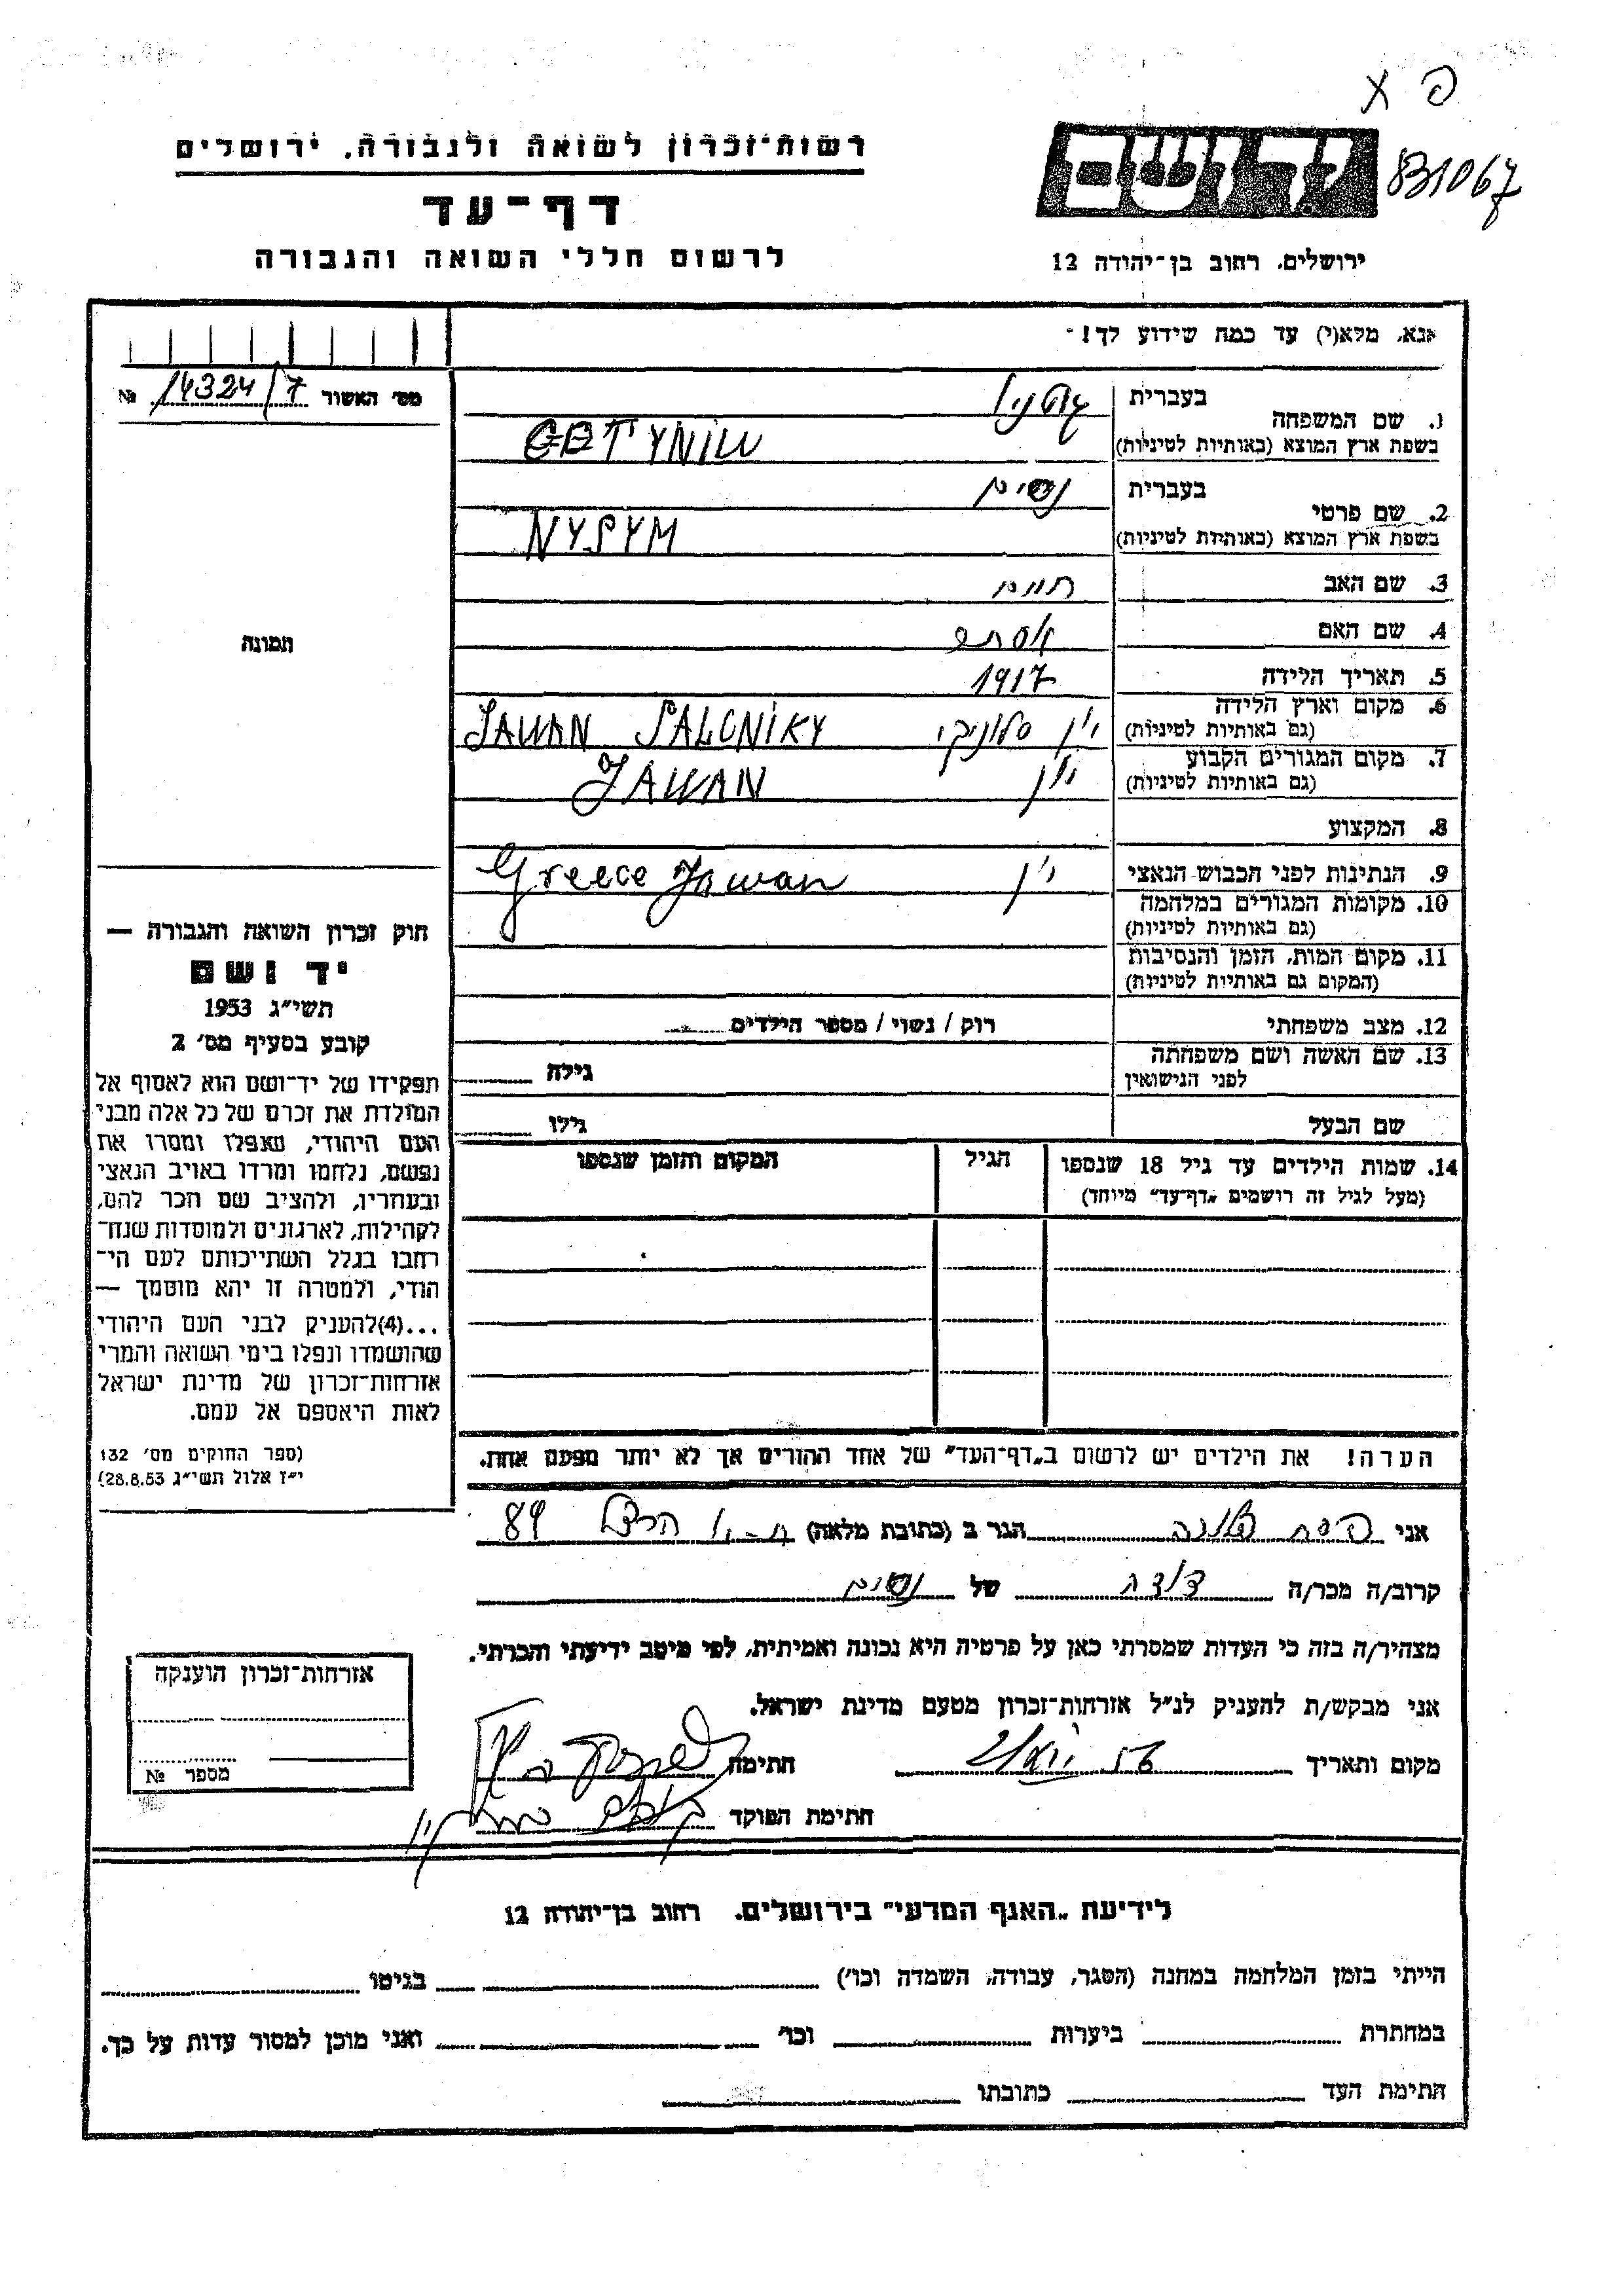 פ א
רשות־זכרון לשואה ולגבורה, ירושלים
דף־עד
לרשום חללי השואה והגבורה
ידושם
831067
ירושלים, רחוב בן־יהודה 12
אנא, מלא(י) עד כמה שידוע לך!
מס׳ האשור 14324/7 №
תמונה
1. שם המשפחה
בעברית
בשפת ארץ המוצא (באותיות לטיניות) GETYNIW
2. שם פרטי
בעברית נסים
בשפת ארץ המוצא (באותיות לטיניות) NYSYM
3. שם האב
4. שם האם אסתר
5. תאריך הלידה 1917
6. מקום וארץ הלידה
(גם באותיות לטיניות) יון סלוניקי JAWAN SALONIKY
7. מקום המגורים הקבוע
(גם באותיות לטיניות) יון JAWAN
8. המקצוע
9. הנתינות לפני הכבוש הנאצי יון Greece Jawan
10. מקומות המגורים במלחמה
(גם באותיות לטיניות)
11. מקום המות, הזמן והנסיבות
(המקום גם באותיות לטיניות)
12. מצב משפחתי רוק / נשוי / מספר הילדים
13. שם האשה ושם משפחתה
לפני הנישואין גילה
שם הבעל גילו
14. שמות הילדים עד גיל 18 שנספו
(מעל לגיל זה רושמים „דף־עד״ מיוחד)
הגיל
המקום והזמן שנספו
הערה! את הילדים יש לרשום ב„דף־העד״ של אחד ההורים אך לא יותר מפעם אחת.
חוק זכרון השואה והגבורה —
יד ושם
תשי״ג 1953
קובע בסעיף מס׳ 2
תפקידו של יד־ושם הוא לאסוף אל
המולדת את זכרם של כל אלה מבני
העם היהודי, שנפלו ומסרו את
נפשם, נלחמו ומרדו באויב הנאצי
ובעוזריו, ולהציב שם וזכר להם,
לקהילות, לארגונים ולמוסדות שנח־
רבו בגלל השתייכותם לעם הי־
הודי, ולמטרה זו יהא מוסמך —
...(4)להעניק לבני העם היהודי
שהושמדו ונפלו בימי השואה והמרי
אזרחות־זכרון של מדינת ישראל
לאות היאספם אל עמם.
(ספר החוקים מס׳ 132
י״ז אלול תשי״ג 28.8.53)
אני הגר ב (כתובת מלאה) 84
קרוב/ה מכר/ה דודה של נסים
מצהיר/ה בזה כי העדות שמסרתי כאן על פרטיה היא נכונה ואמיתית, לפי מיטב ידיעתי והכרתי.
אני מבקש/ת להעניק לנ״ל אזרחות־זכרון מטעם מדינת ישראל.
מקום ותאריך חתימה
חתימת הפוקד
אזרחות־זכרון הוענקה
מספר №
לידיעת „האגף המדעי״ בירושלים, רחוב בן־יהודה 12
הייתי בזמן המלחמה במחנה (הסגר, עבודה, השמדה וכו׳) בגיטו
במחתרת ביערות וכו׳ ואני מוכן למסור עדות על כך.
חתימת העד כתובתו